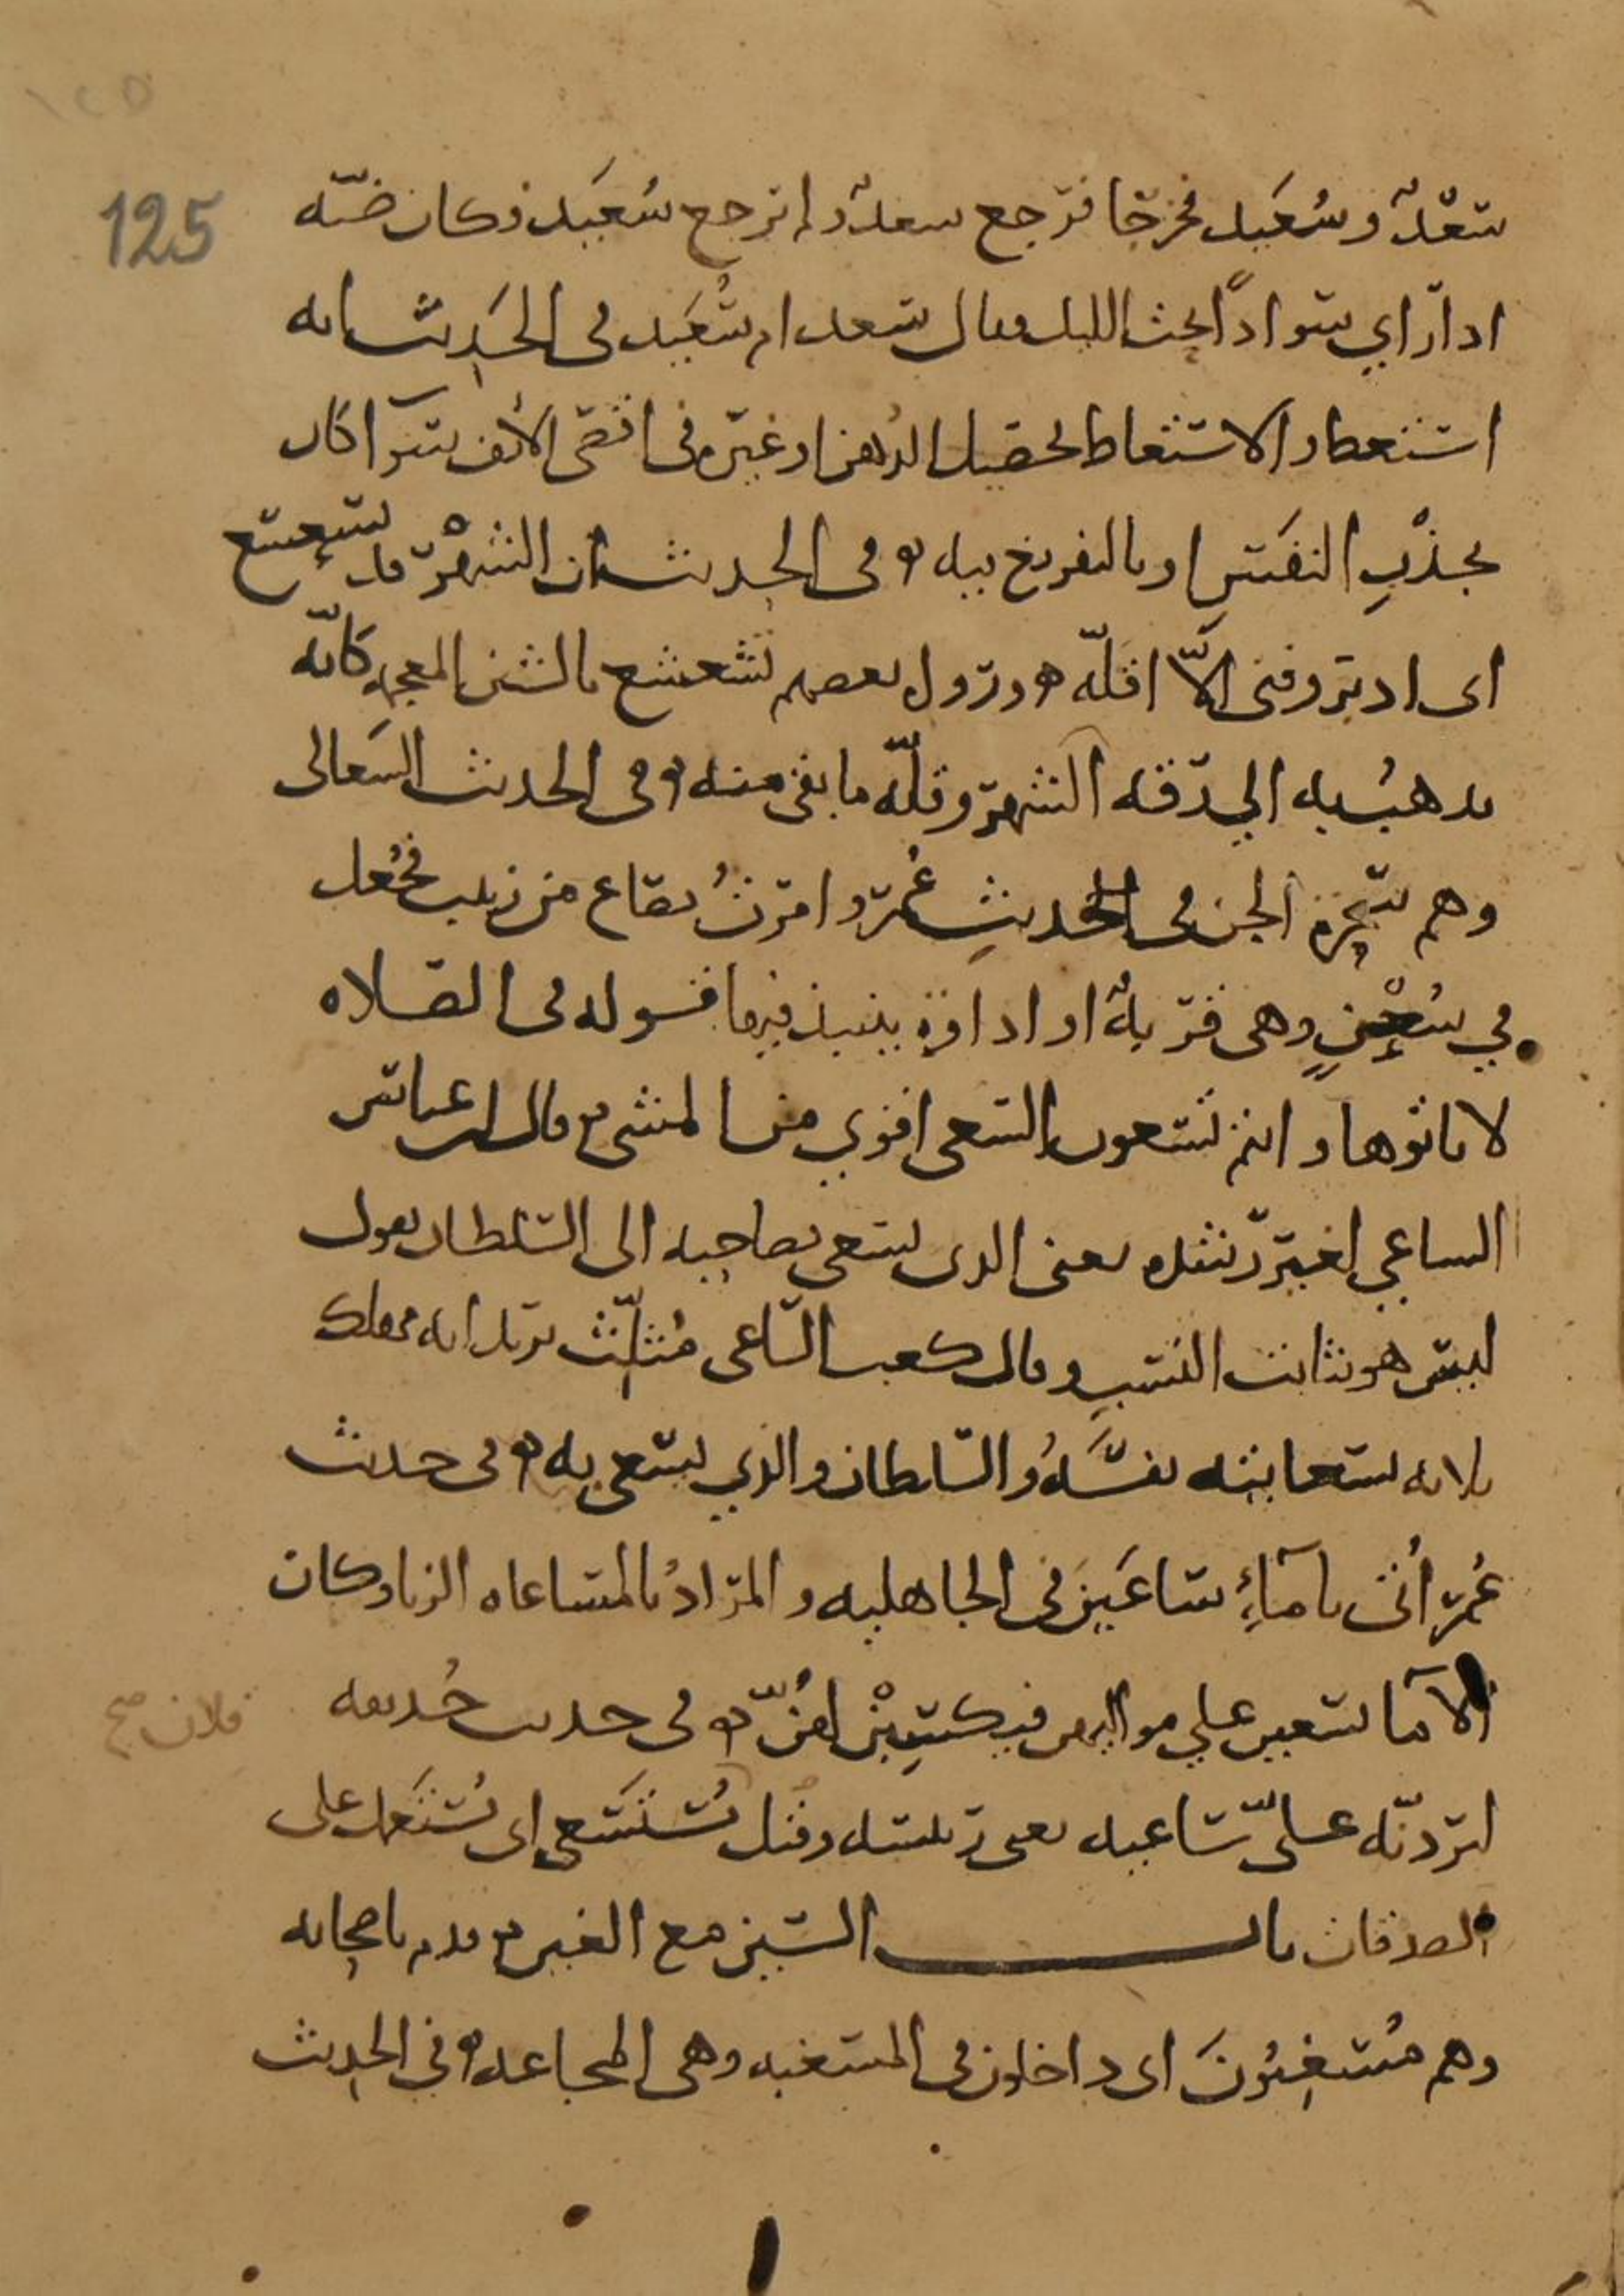 ١٢٥
125
سعدٌ وسُعَيد فخرجا فرجع سعدٌ ولم يرجع سُعَيد فكان ضبّه
اذا رأي سوادًا تحت الليل وقال سعد ام سُعَيد في الحَديث انه
استعط والاستعاط تحصيل الدُهن او غيره في اقصى الأنف سوآ كان
بجذْبِ النفَسِ او بالتفريغ فيه ۞ في الحديث ان الشهْر قد تسعسع
اى ادبر وفنى الاّ اقلّه ۞ ورواه بعضهم تشعشع بالشين المعجمه كانّه
يذهبُ به الي رقه الشهر وقلّه ما بقى منه ۞ في الحديث السَعالى
وهم سَحَرة الجن في الحديثِ عُمر وامرتُ بصاع من زبيب فجُعل
في سُعْنٍ وهى قربهٌ او اداوة ينبذ فيها قوله في الصلاه
لا تاتوها وانتم تسعون السعى اقوي من المشى ۞ قال ابن عباس
الساعي لغير رشده يعنى الذى يسعى بصاحبه الى السلطان يقول
ليس هو ثابت النسبِ وقال كعب السّاعى مُثلّث يريد انه مهلك
ثلاثه بسعايته نفسَهُ والسّلطان والذي يسعى به ۞ في حديث
عُمر أُتى بامآءٍ ساعَيْنَ في الجاهليه والمرادُ بالمساعاه الزنا وكان
الآما يسعين علي مواليهن فيكسِبْن لهُنّ ۞ في حديث حُذيفه
فلان صح
ليردنّه علىّ ساعيه يعنى رئيسه وقيل يُستسعى اى يُستعمل على
الصدقات باب السّين مع الغين ۞ قدم باصحابه
وهم مُسغِبُونَ اى داخلون في المسغبه وهى المجاعه ۞ في الحديث